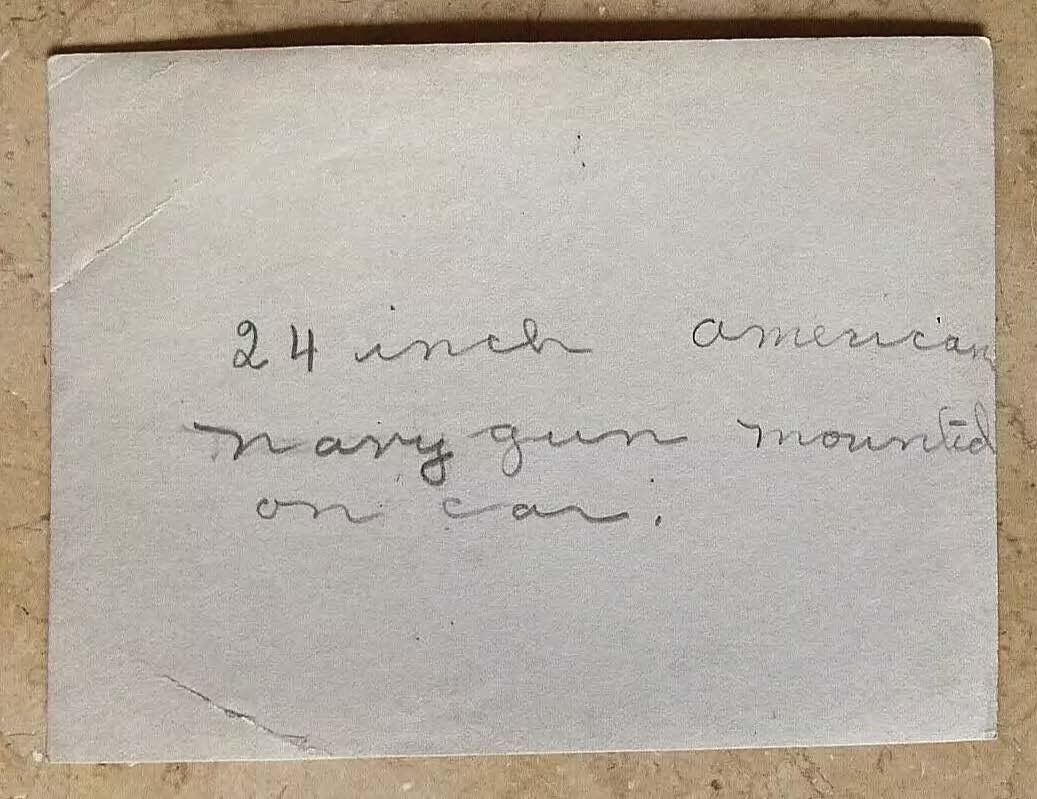 24 inch american
navy gun mounted
on car.